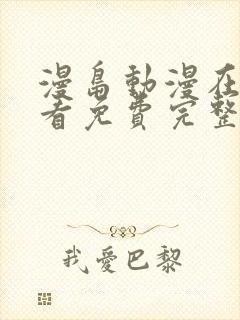 漫畠動漫在
看免費完整
我愛巴黎